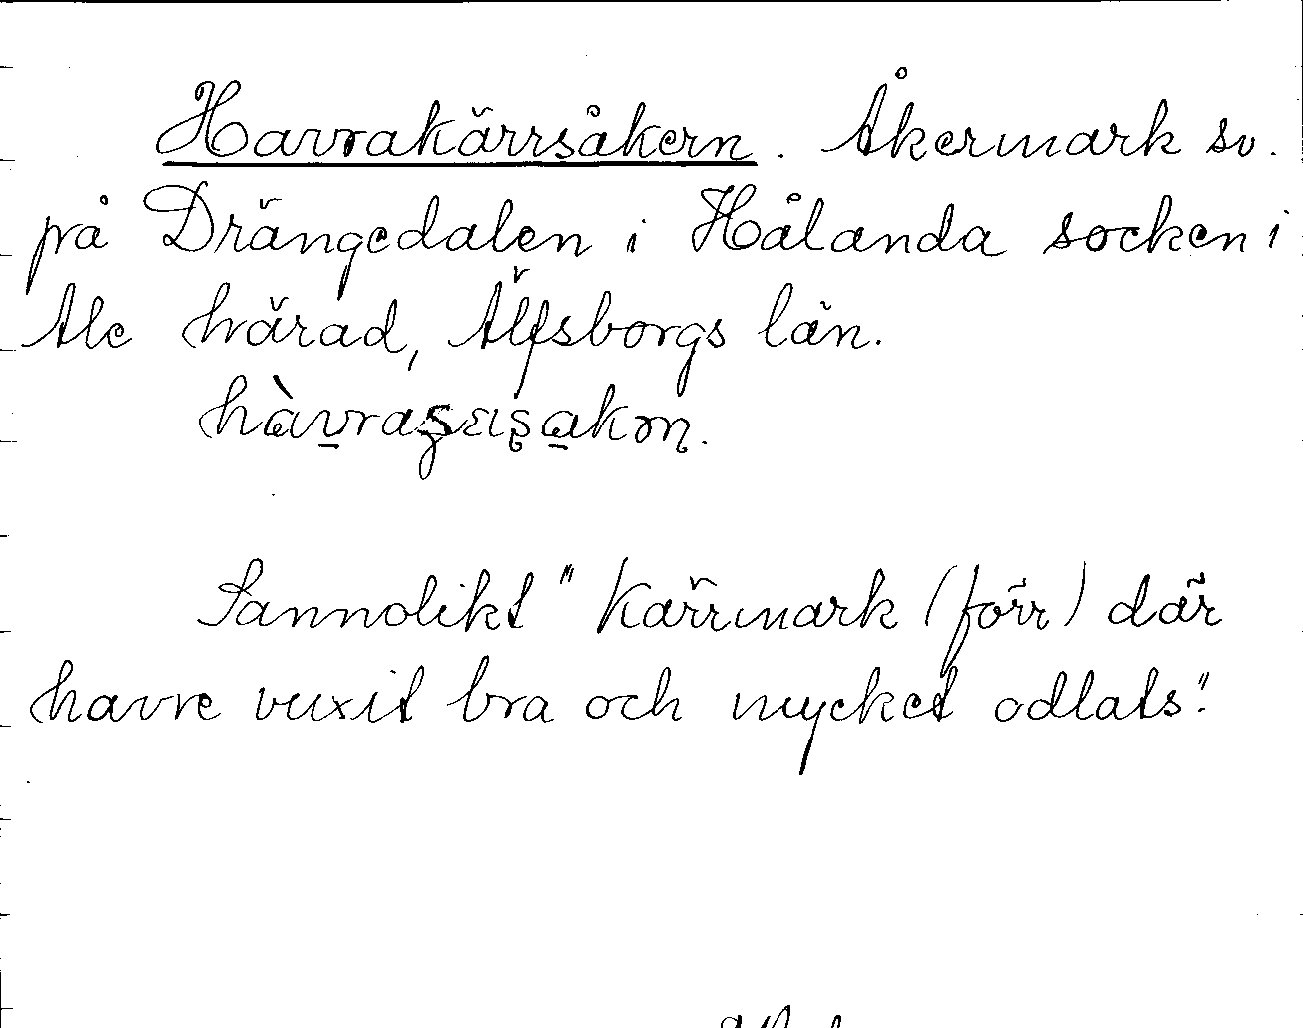 Havrakärrsåkern. Åkermark sv.
på Drängedalen i Hålanda socken i
Ale härad, Älfsborgs län.
Sannolikt "Kärrmark (förr) där
havre vuxit bra och mycket odlats".